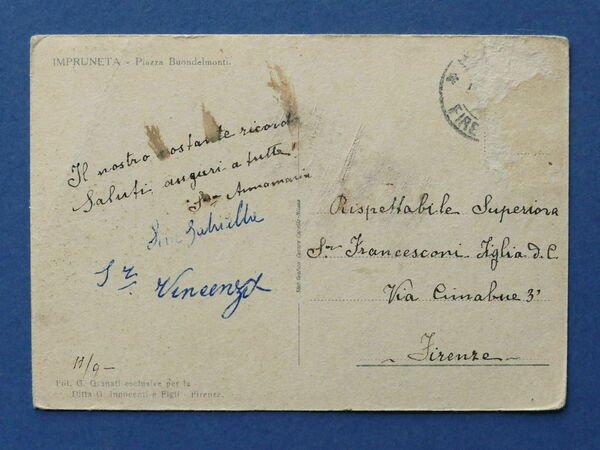 IMPRUNETA - Piazza Buondelmonti.
FIRE
Il nostro costante ricordo
Saluti, auguri a tutte.
Sr Annamaria
Suor Gabriella
Sr. Vincenza
11/9-
Rispettabile Superiora
Sr Francesconi Figlia d. C.
Via Cimabue 3'
Firenze
Fot. G. Granati esclusive per la
Ditta G. Innocenti e Figli - Firenze.